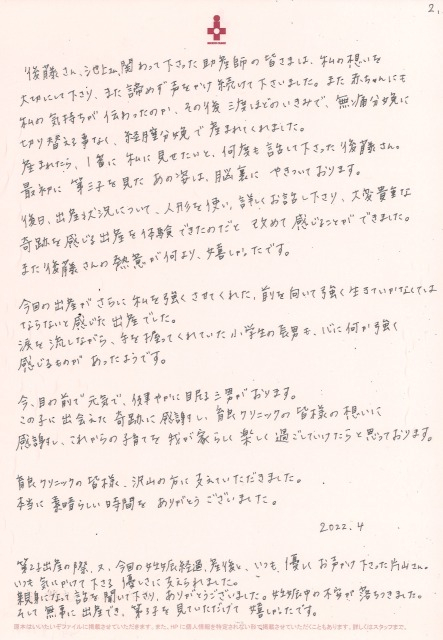 2.
後藤さん、池上さん、関わって下さった助産師の皆さまは、私の想いを
大切にして下さり、また諦めず声をかけ続けて下さいました。また赤ちゃんにも
私の気持ちが伝わったのか、その後三度ほどのいきみで、無痛分娩に
切り替える事なく、経膣分娩で産まれてくれました。
産まれたら、1番に私に見せたいと、何度も話して下さった後藤さん。
最初に第三子を見たあの姿は、脳裏にやきついております。
後日、出産状況について、人形を使い、詳しくお話し下さり、大変貴重な
奇跡を感じる出産を体験できたのだと改めて感じることができました。
また後藤さんの熱意が何より、嬉しかったです。
今回の出産がさらに私を強くさせてくれた、前を向いて強く生きていかなくては
ならないと感じた出産でした。
涙を流しながら、手を握ってくれていた小学生の長男も、心に何か強く
感じるものがあったようです。
今、目の前で元気で、健やかに眠る三男がおります。
この子に出会えた奇跡に感謝し、育良クリニックの皆様の想いに
感謝し、これからの子育てを我が家らしく楽しく過ごしていけたらと思っております。
育良クリニックの皆様、沢山の方に支えていただきました。
本当に素晴らしい時間をありがとうございました。
2022.4
第2子出産の際、又、今回の妊娠経過、産後と、いつも、優しくお声かけ下さった片山さん。
いつも気にかけて下さる優しさに支えられました。
親身になって話を聞いて下さり、ありがとうございました。妊娠中の不安が落ちつきました。
そして無事に出産でき、第3子を見ていただけて嬉しかったです。